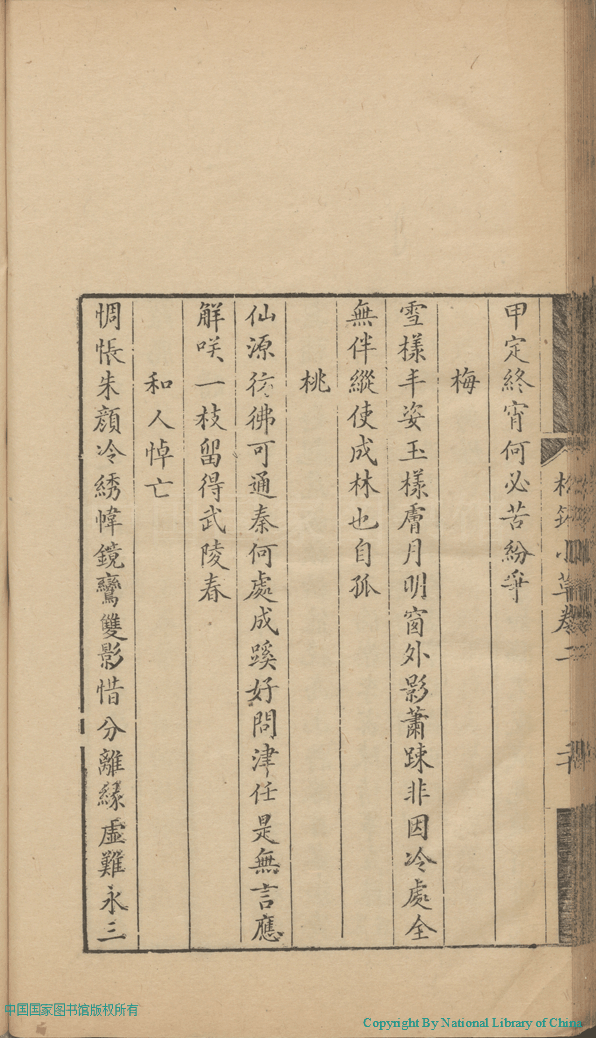 甲定終宵何必苦紛爭
梅
雪樣丰姿玉樣膚月明窗外影蕭踈非因冷處全
無伴縱使成林也自孤
桃
仙源彷彿可通秦何處成蹊好問津任是無言應
觧咲一枝留得武陵春
和人悼亡
惆悵朱顔冷綉幃鏡鸞雙影惜分離緣虛難永三
小草卷二
中国国家图书馆版权所有
Copyright By National Library of China